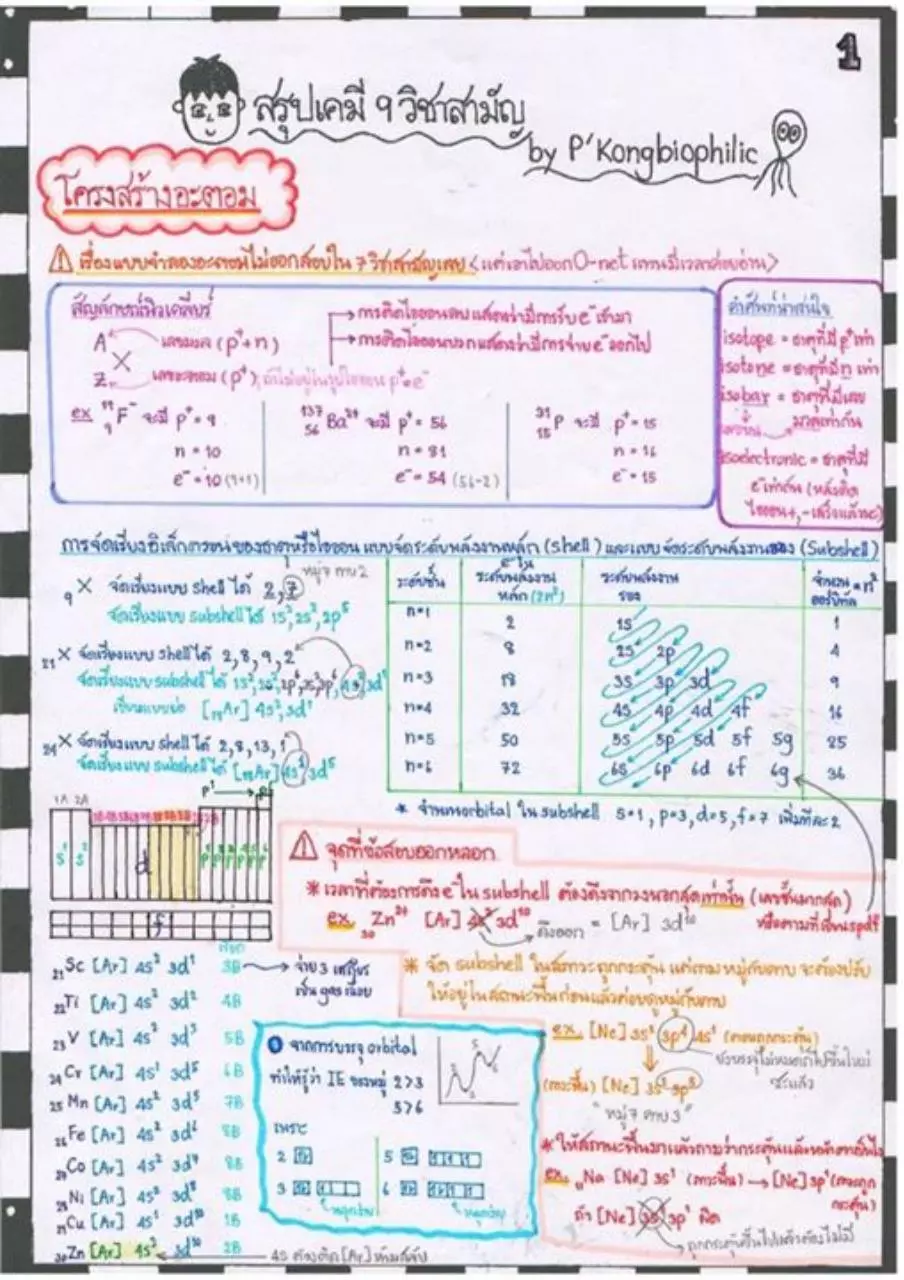 1
สรุปเคมี 9 วิชาสามัญ
by P'Kongbiophilic
โครงสร้างอะตอม
เรื่องแบบจำลองอะตอมไม่ออกสอบใน 7 วิชาสามัญเลย <แต่เอาไปออก O-net แทนมีเวลาค่อยอ่าน>
สัญลักษณ์นิวเคลียร์
การติดไอออนลบแสดงว่ามีการรับ e⁻ เข้ามา
การติดไอออนบวกแสดงว่ามีการจ่าย e⁻ ออกไป
A เลขมวล (p⁺+n)
X
Z เลขอะตอม (p⁺) ถ้าไม่อยู่ในรูปไอออน p⁺=e⁻
ex ¹⁹₉F⁻ จะมี p⁺ = 9
n = 10
e⁻ = 10 (9+1)
¹³⁷₅₆Ba²⁺ จะมี p⁺ = 56
n = 81
e⁻ = 54 (56-2)
³¹₁₅P จะมี p⁺ = 15
n = 16
e⁻ = 15
คำศัพท์น่าสนใจ
isotope = ธาตุที่มี p⁺เท่า
isotone = ธาตุที่มี n เท่า
isobar = ธาตุที่มีเลข
มวลเท่ากัน
isoelectronic = ธาตุที่มี
e⁻เท่ากัน (หลังติด
ไอออน+,- เสร็จแล้วนะ)
การจัดเรียงอิเล็กตรอนของธาตุหรือไอออน แบบจัดระดับพลังงานหลัก (shell) และแบบจัดระดับพลังงานรอง (Subshell)
หมู่ 7 คาบ 2
₉X จัดเรียงแบบ shell ได้ 2,7
จัดเรียงแบบ subshell ได้ 1s², 2s², 2p⁵
₂₁X จัดเรียงแบบ shell ได้ 2,8,9,2
จัดเรียงแบบ subshell ได้ 1s², 2s², 2p⁶, 3s², 3p⁶, 4s², 3d¹
เขียนแบบย่อ [₁₈Ar] 4s², 3d¹
₂₄X จัดเรียงแบบ shell ได้ 2,8,13,1
จัดเรียงแบบ subshell ได้ [₁₈Ar] 4s¹ 3d⁵
ระดับชั้น ระดับพลังงานหลัก (2n²) ระดับพลังงานรอง จำนวนออร์บิทัล = n²
n=1 2 1s 1
n=2 8 2s 2p 4
n=3 18 3s 3p 3d 9
n=4 32 4s 4p 4d 4f 16
n=5 50 5s 5p 5d 5f 5g 25
n=6 72 6s 6p 6d 6f 6g 36
* จำนวน orbital ใน subshell s=1, p=3, d=5, f=7 เพิ่มทีละ 2
1A 2A
s¹ s² d
f
จุดที่ข้อสอบออกหลอก
* เวลาที่ต้องการดึง e⁻ ใน subshell ต้องดึงจากวงนอกสุดเท่านั้น (เลขชั้นมากสุด)
หรือตามที่เขียน spdf
ex. ₃₀Zn²⁺ [Ar] 4s² 3d¹⁰ ดึงออก = [Ar] 3d¹⁰
* จัด subshell ในสภาวะถูกกระตุ้น แต่ถามหมู่กับคาบ จะต้องปรับ
ให้อยู่ในสถานะพื้นก่อนแล้วค่อยดูหมู่กับคาบ
ex. [Ne] 3s² 3p⁴ 4s¹ (ตอนถูกกระตุ้น)
(ภาวะพื้น) [Ne] 3s² 3p⁵
"หมู่ 7 คาบ 3"
ex. ₁₁Na [Ne] 3s¹ (ภาวะพื้น) → [Ne] 3p¹ (ภาวะถูก
กระตุ้น)
ถ้า [Ne] 3s¹ 3p¹ ผิด
₂₁Sc [Ar] 4s² 3d¹ 3B
จ่าย 3 เสถียร
₂₂Ti [Ar] 4s² 3d² 4B
₂₃V [Ar] 4s² 3d³ 5B
₂₄Cr [Ar] 4s¹ 3d⁵ 6B
₂₅Mn [Ar] 4s² 3d⁵ 7B
₂₆Fe [Ar] 4s² 3d⁶ 8B
₂₇Co [Ar] 4s² 3d⁷ 8B
₂₈Ni [Ar] 4s² 3d⁸ 8B
₂₉Cu [Ar] 4s¹ 3d¹⁰ 1B
₃₀Zn [Ar] 4s² 3d¹⁰ 2B
จากการบรรจุ orbital
ทำให้รู้ว่า IE ของหมู่ 2 > 3
5 > 6
เพราะ
2
5
3
6